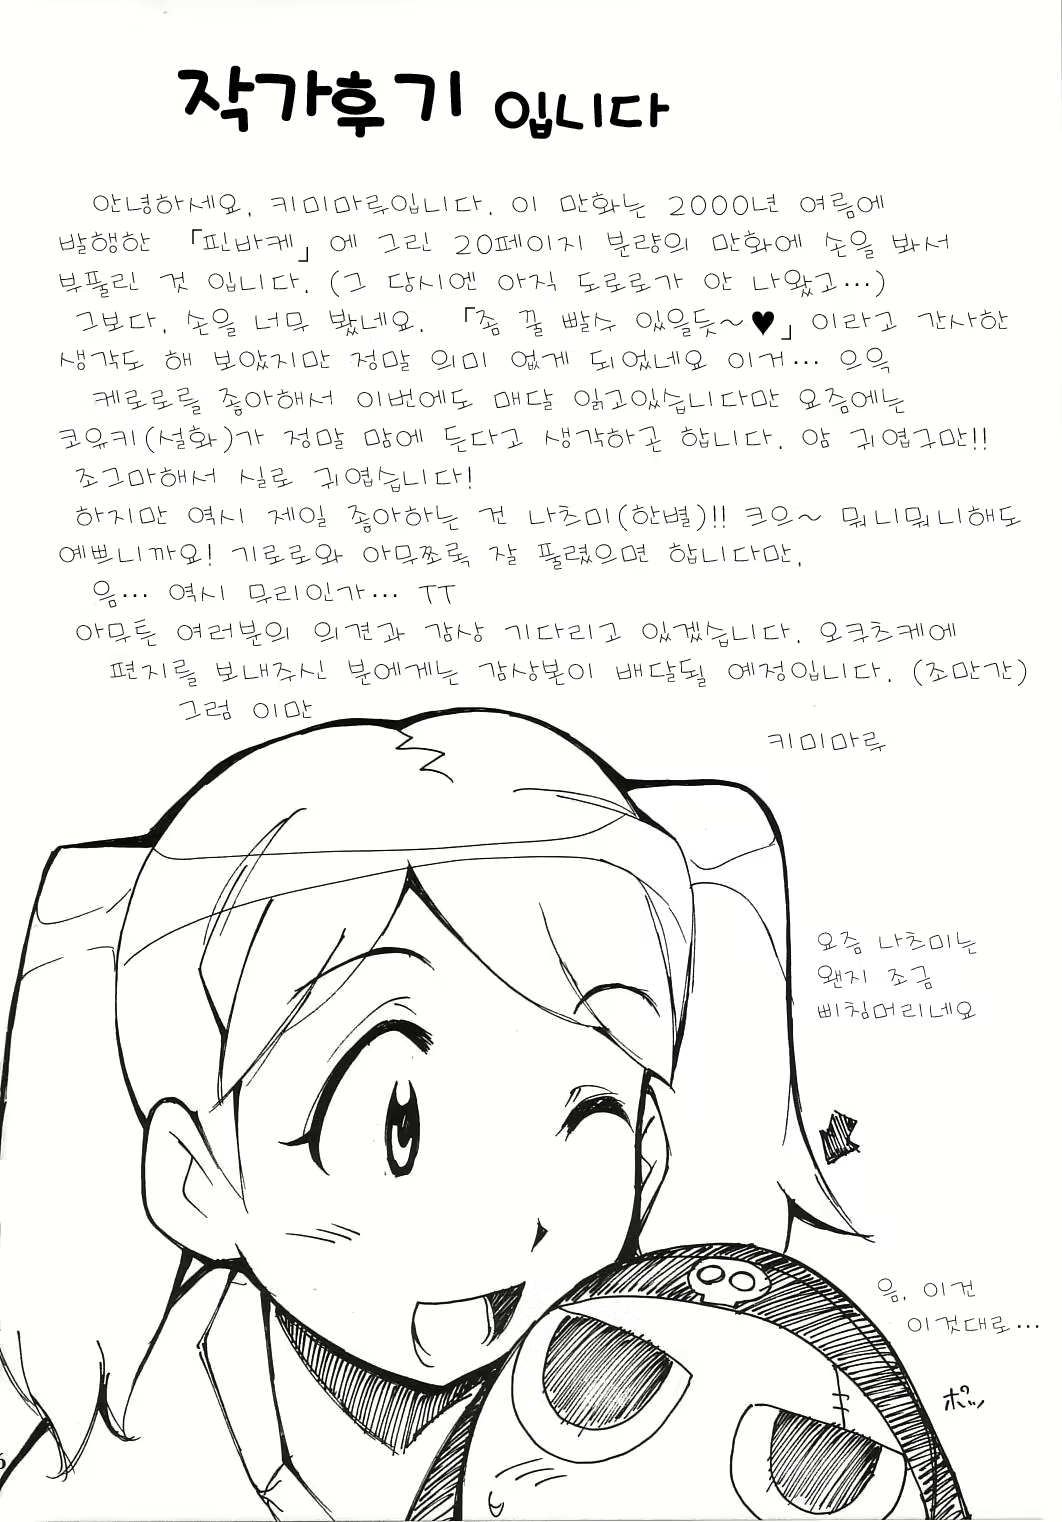 작가후기 입니다
안녕하세요, 키미마루입니다. 이 만화는 2000년 여름에
발행한 「핀바케」에 그린 20페이지 분량의 만화에 손을 봐서
부풀린 것 입니다. (그 당시엔 아직 도로로가 안 나왔고…)
그보다, 손을 너무 봤네요. 「좀 꿀 빨수 있을듯~♥」이라고 간사한
생각도 해 보았지만 정말 의미 없게 되었네요 이거… 으윽
케로로를 좋아해서 이번에도 매달 읽고있습니다만 요즘에는
코유키(설화)가 정말 맘에 든다고 생각하곤 합니다. 암 귀엽구만!!
조그마해서 실로 귀엽습니다!
하지만 역시 제일 좋아하는 건 나츠미(한별)!! 크으~ 뭐니뭐니해도
예쁘니까요! 기로로와 아무쪼록 잘 풀렸으면 합니다만,
음… 역시 무리인가… TT
아무튼 여러분의 의견과 감상 기다리고 있겠습니다. 오쿠츠케에
편지를 보내주신 분에게는 감상본이 배달될 예정입니다. (조만간)
그럼 이만
키미마루
요즘 나츠미는
왠지 조금
삐침머리네요
음, 이건
이것대로…
ポッ
6